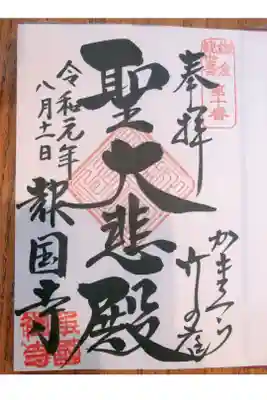 鎌倉
第十番
奉拝
かまくら
竹の庭
聖大悲殿
令和元年
八月十一日
報国寺